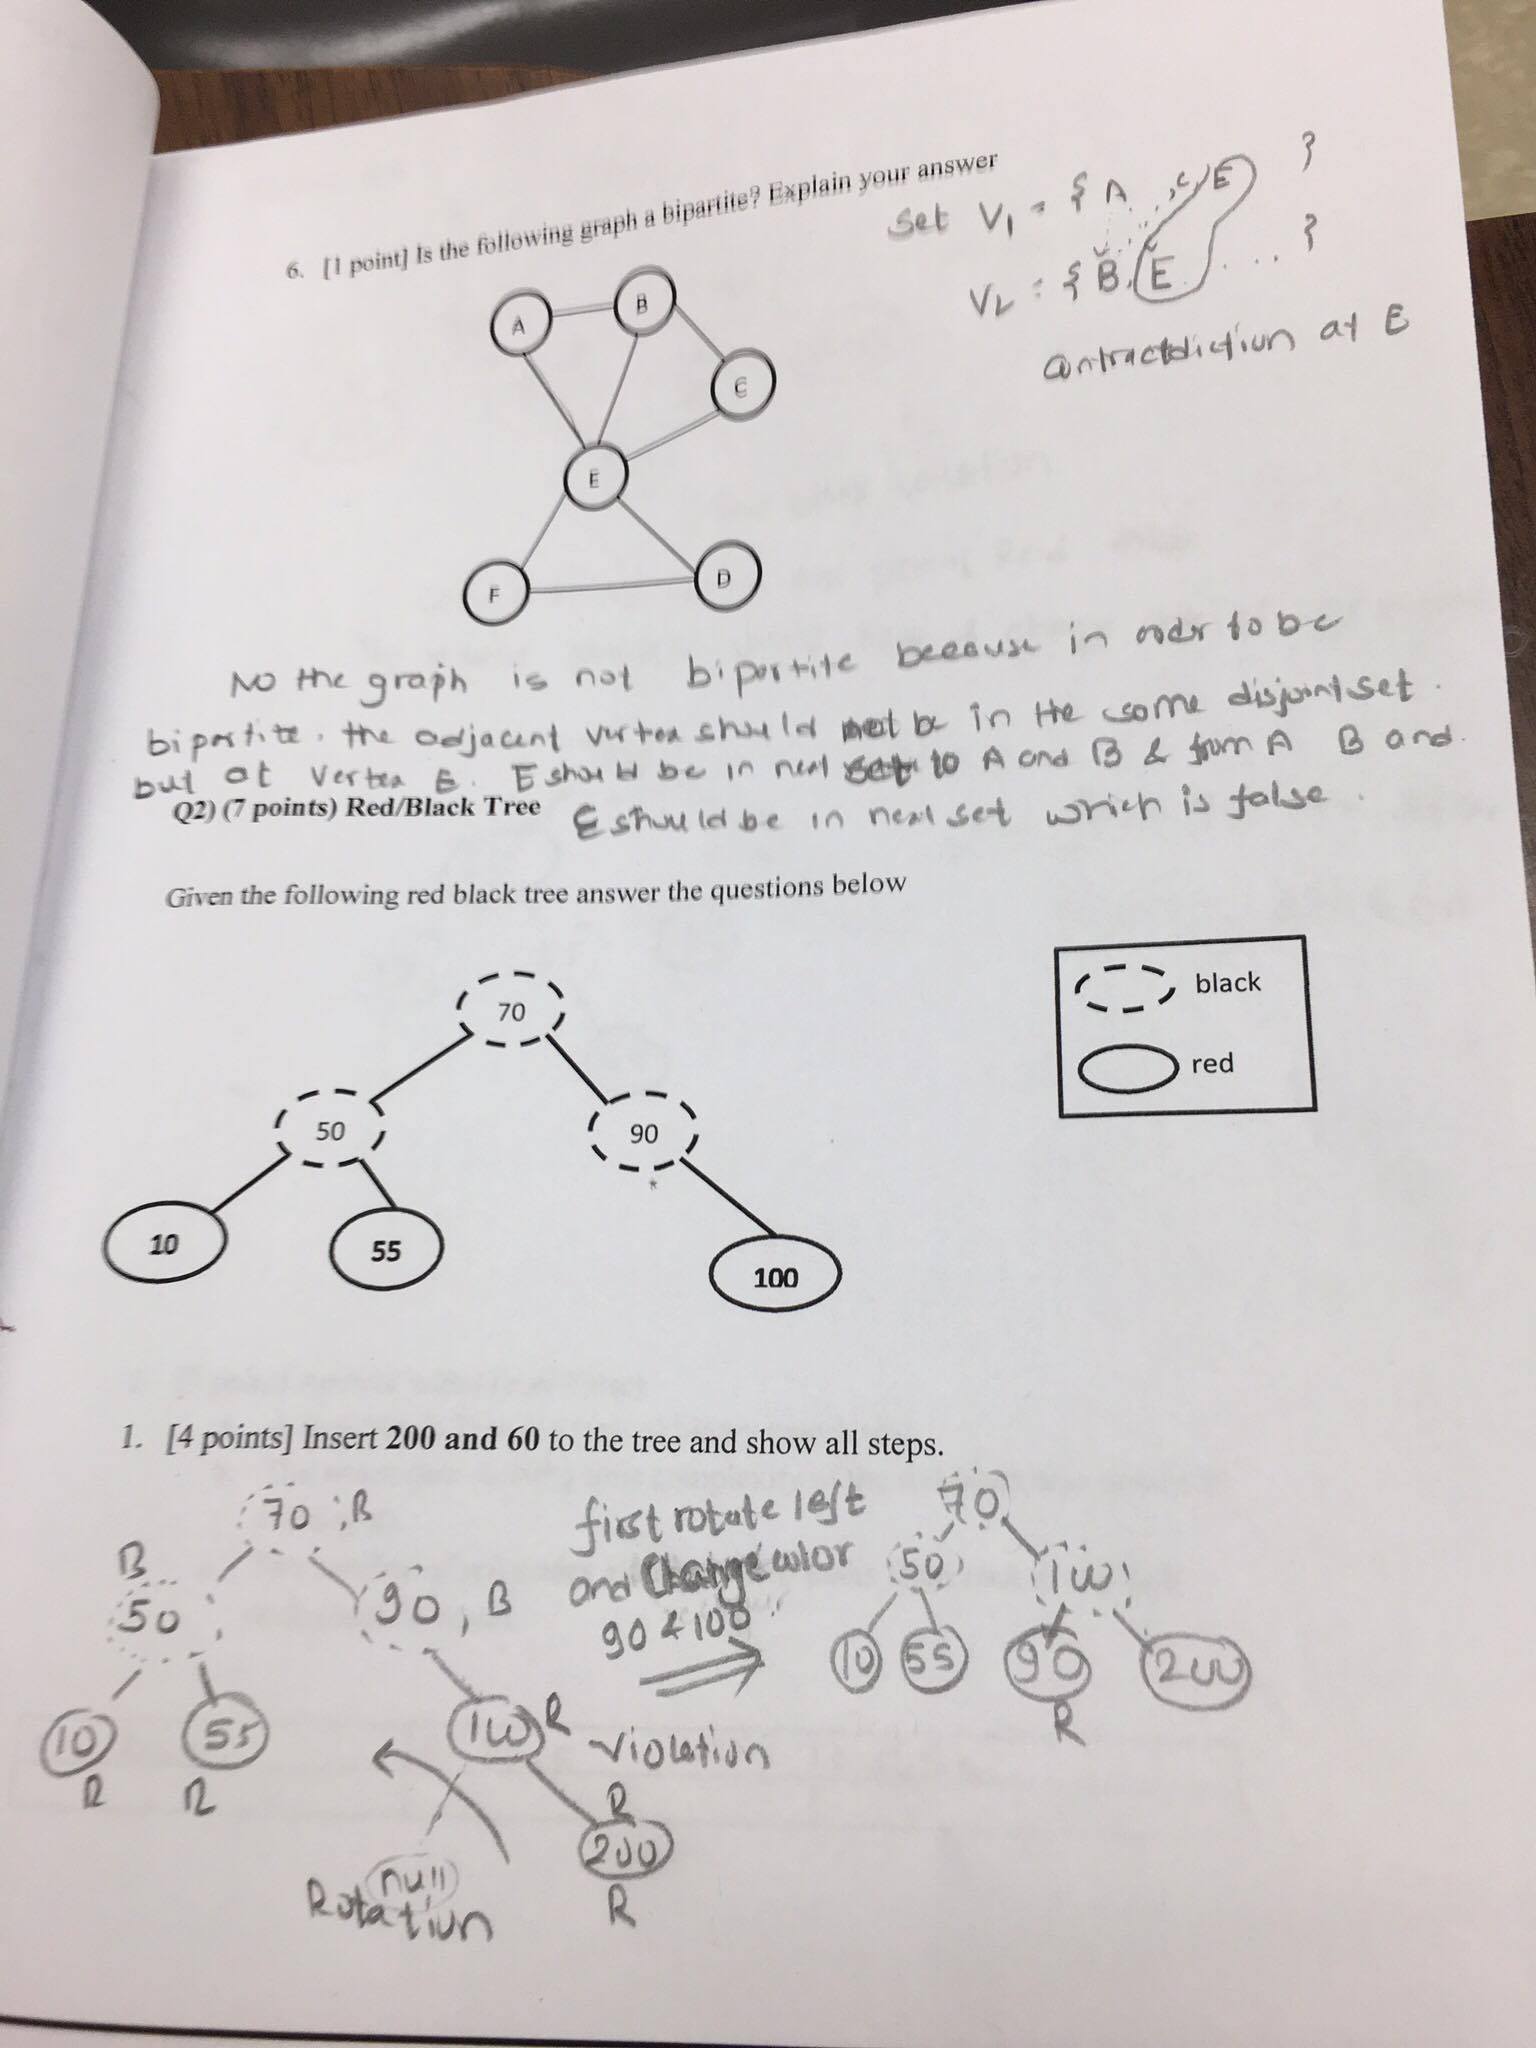 6. [1 point] Is the following graph a bipartite? Explain your answer
Set V₁ = { A . . . , C, E }
V₂ = { B, E . . . }
contractdiction at E
A
B
C
E
F
D
No the graph is not bipartite because in order to be
bipartite. the adjacent vertex should not be in the same disjoint set.
but at vertex E. E should be in next set to A and B & from A B and
Q2) (7 points) Red/Black Tree
E should be in next set which is false.
Given the following red black tree answer the questions below
70
50
90
10
55
100
*
black
red
1. [4 points] Insert 200 and 60 to the tree and show all steps.
70 ; B
B
50
90, B
10
R
55
R
100 R
violation
R
200
R
null
Rotation
first rotate left
and Change color
90 & 100
70
50
100
10
55
90
R
200